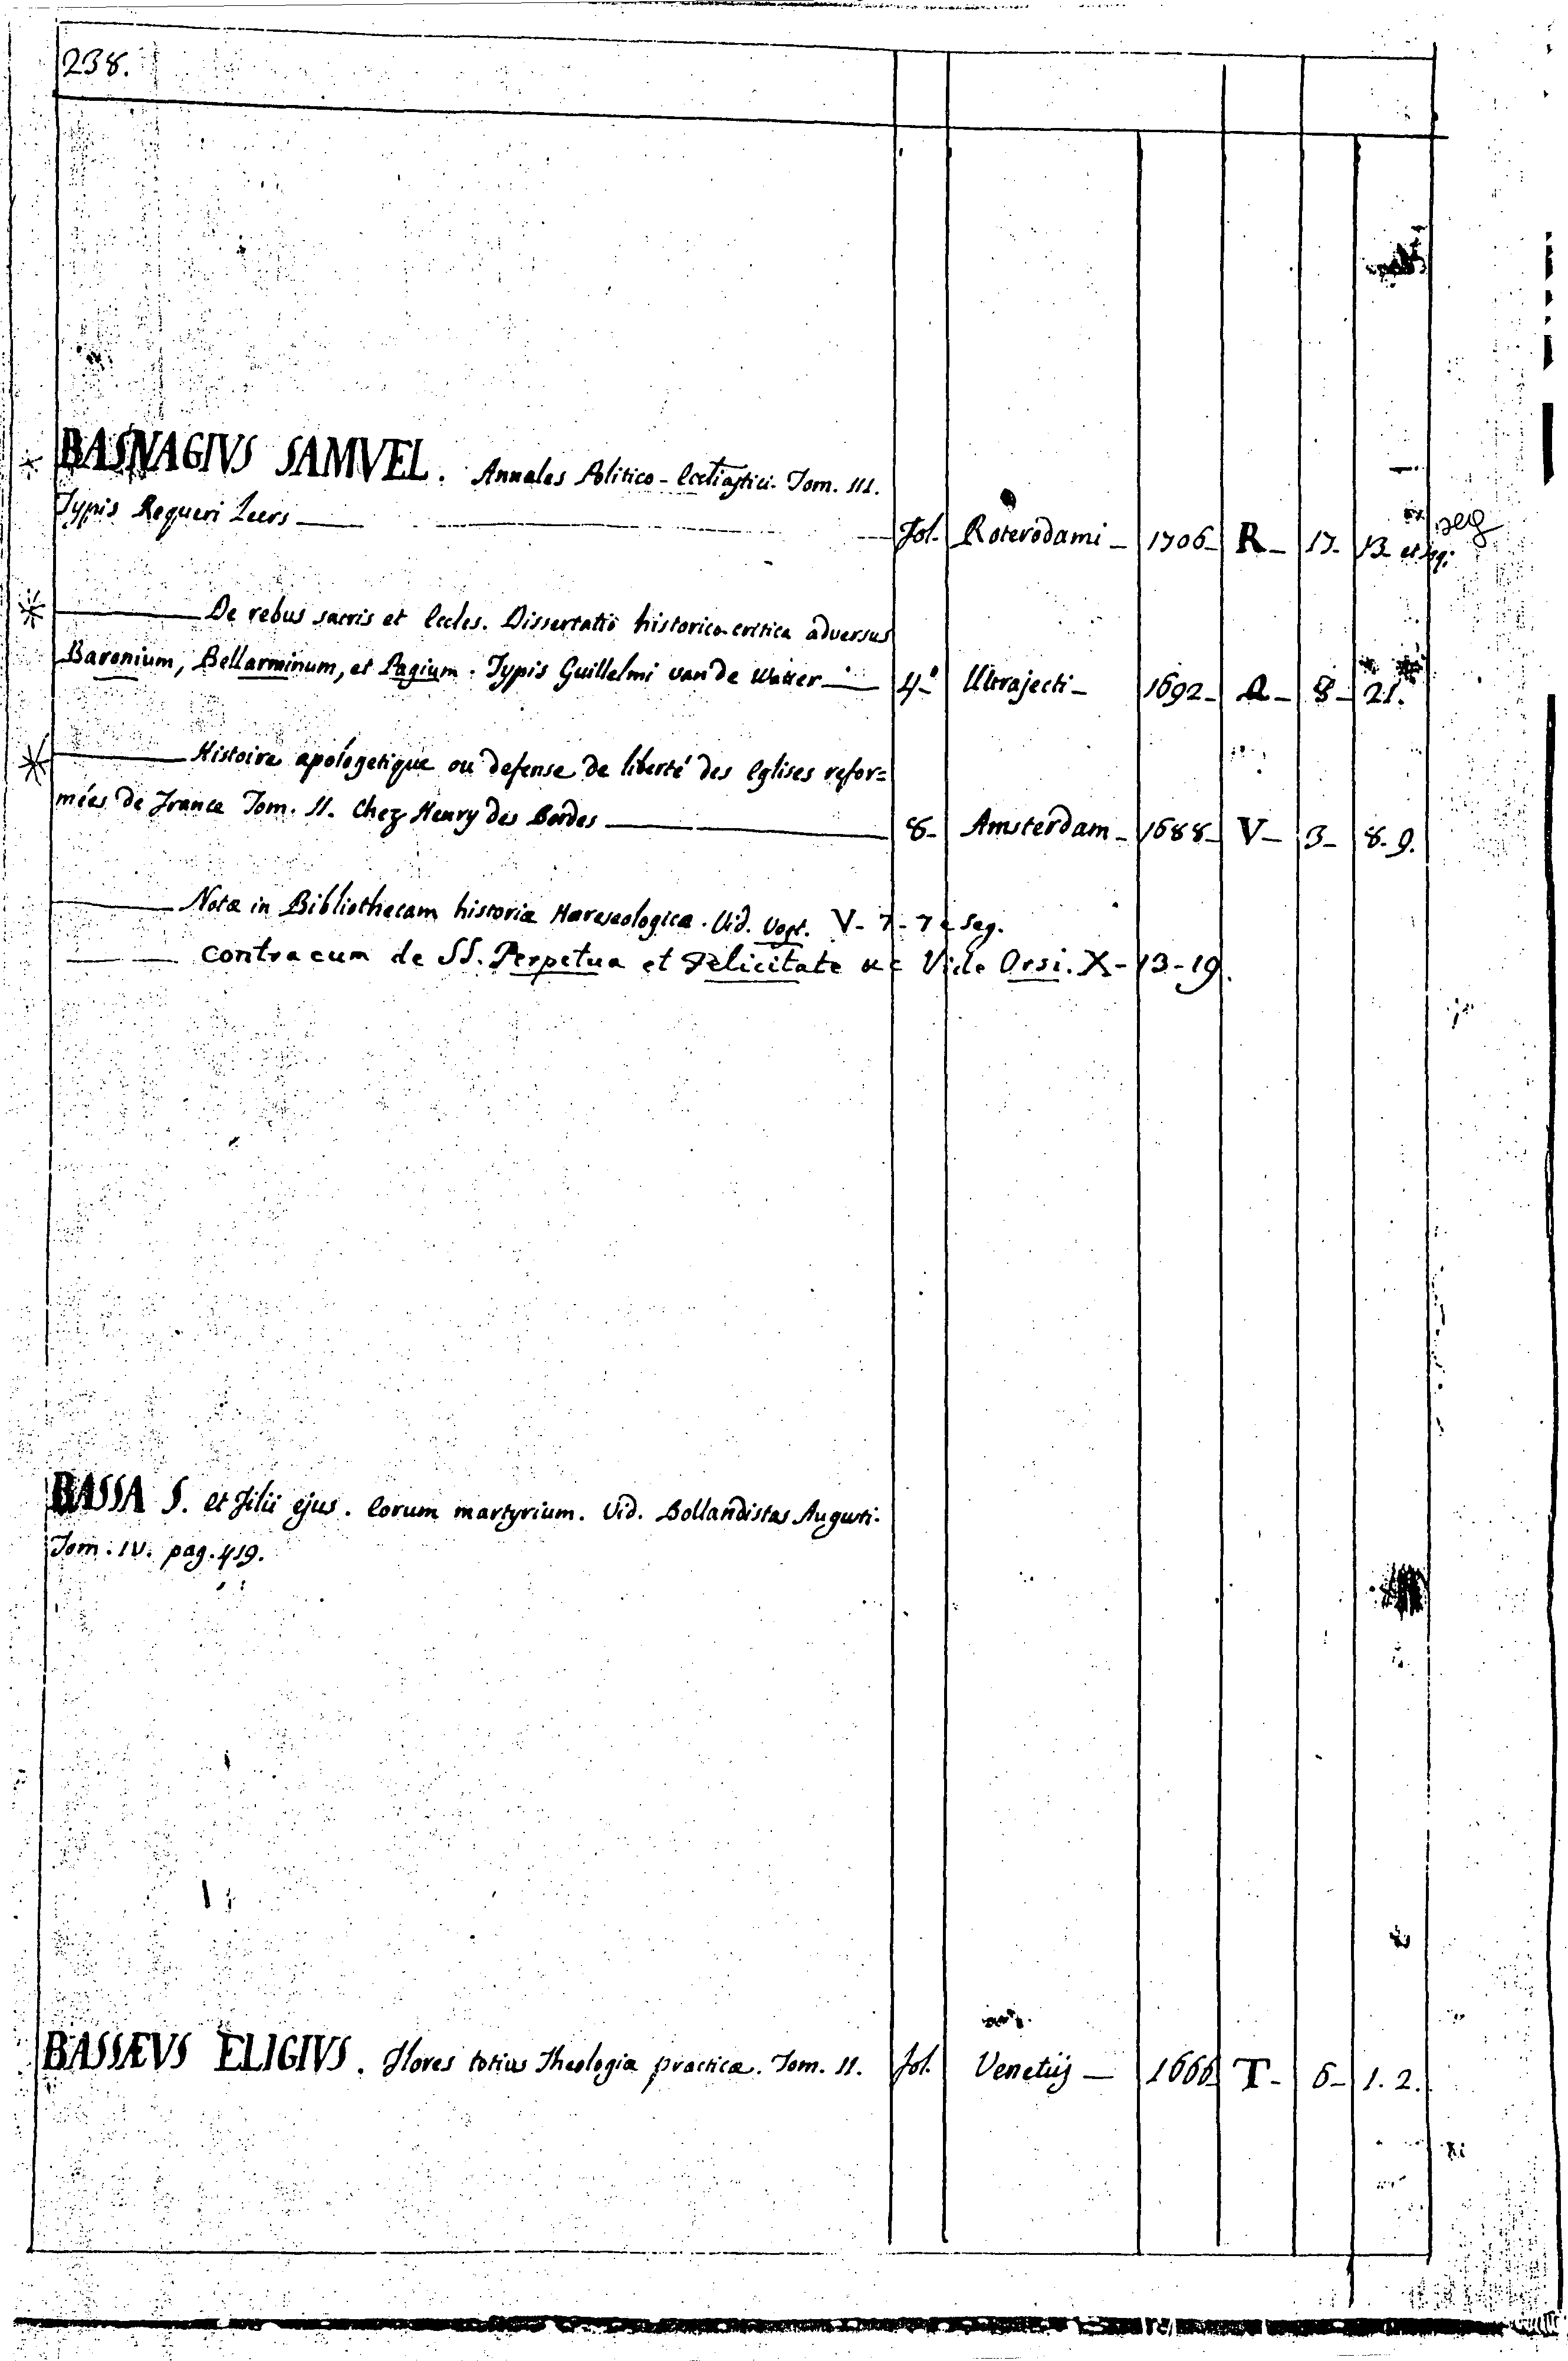 238.
BASNAGIVS SAMVEL. Annales Politico-Eccliastici. Tom. III.
Typis Regneri Leers — Fol. Roterodami – 1706 – R – 17 – 13 et sq: seq
De rebus sacris et Eccles. Dissertatio historico-critica adversus
Baronium, Bellarminum, et Pagium. Typis Guillelmi van de Water — 4° Ultrajecti – 1692 – – 8 – 21.
Histoire apologetique ou defense de liberté des Eglises refor=
mées de France Tom. II. Chez Henry des Bordes — 8 – Amsterdam – 1688 – V – 3 – 8. 9.
Notæ in Bibliothecam historiæ Hæreseologicæ. Vid. Vogt. V – 7 – 7 e seg.
contra eum de SS. Perpetua et Felicitate &c Vide Orsi. X – 13 – 19.
BASSA S. et Filii ejus. Eorum martyrium. Vid. Bollandistas Augusti.
Tom. IV. pag. 419.
BASSÆVS ELIGIVS. Flores totius Theologiæ practicæ. Tom. II. Fol. Venetiis – 1666 T – 6 – 1. 2.